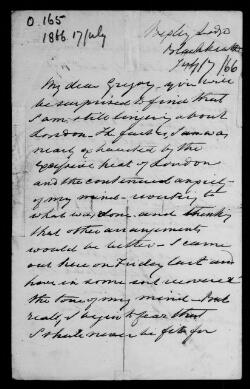 O.165
1866. 17/July
Bexley Lodge
Blackheath
July 17/66
My dear Gregory, you will
be surprised to find that
I am still lingering about
London. The fact is, I was
nearly exhausted by the
excessive heat of London
and the continued anxiety
of my mind
what was done and thinking
that other arrangements
would be better — I came
out here on Friday last and
have in some sort recovered
the tone of my mind — But
really I begin to fear that
I shall never be fit for